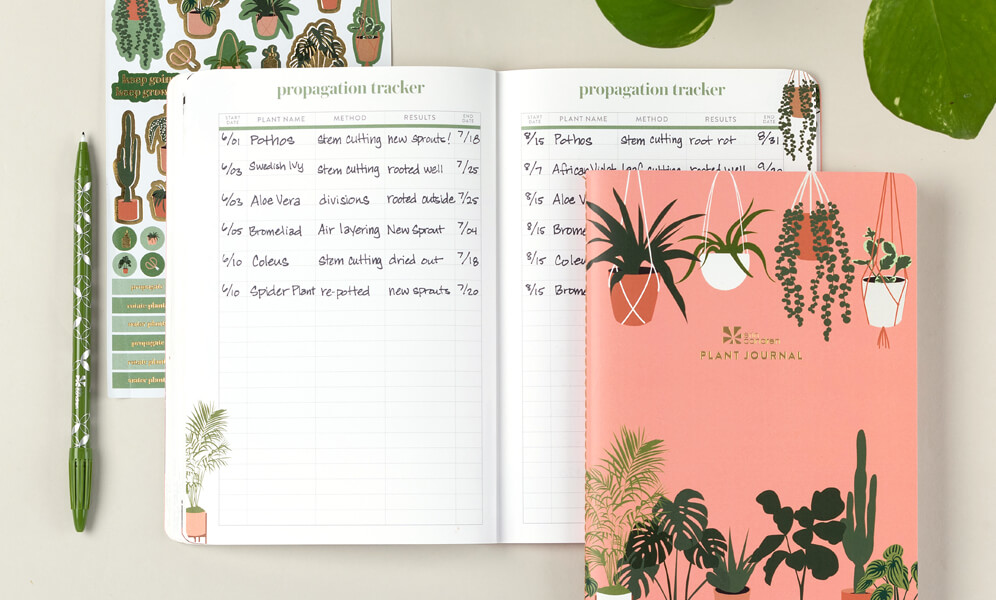 keep going
keep growing
propagate
water plant
propagate
water plant
propagation tracker
START DATE PLANT NAME METHOD RESULTS END DATE
6/01 Pothos stem cutting new sprouts! 7/18
6/03 Swedish Ivy stem cutting rooted well 7/25
6/03 Aloe Vera divisions rooted outside 7/25
6/05 Bromeliad Air layering New Sprout 7/04
6/10 Coleus stem cutting dried out 7/18
6/10 Spider Plant re-potted new sprouts 7/20
propagation tracker
START DATE PLANT NAME METHOD RESULTS END DATE
8/15 Pothos stem cutting root rot 8/31
8/7 African cutting rooted well
8/15 Aloe V
8/15 Brome
8/15 Coleu
8/15 Brome
PLANT JOURNAL